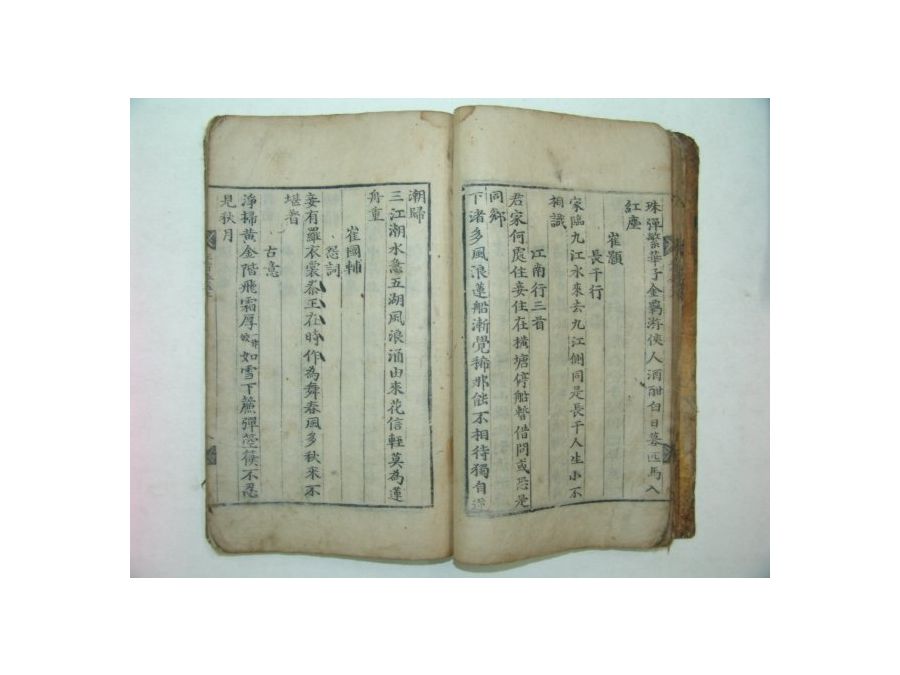 珠彈繁華子金羈游俠人酒酣白日暮匹馬入
紅塵
崔顥
長干行
家臨九江水來去九江側同是長干人生小不
相識
江南行三首
君家何處住妾住在橫塘停船暫借問或恐是
同鄉
下渚多風浪蓮船漸覺稀那能不相待獨自逆
潮歸
三江潮水急五湖風浪涌由來花信輕莫為蓮
舟重
崔國輔
怨詞
妾有羅衣裳秦王在時作為舞春風多秋來不
堪着
古意
淨掃黃金階飛霜厚如雪下簾彈箜篌不忍
見秋月